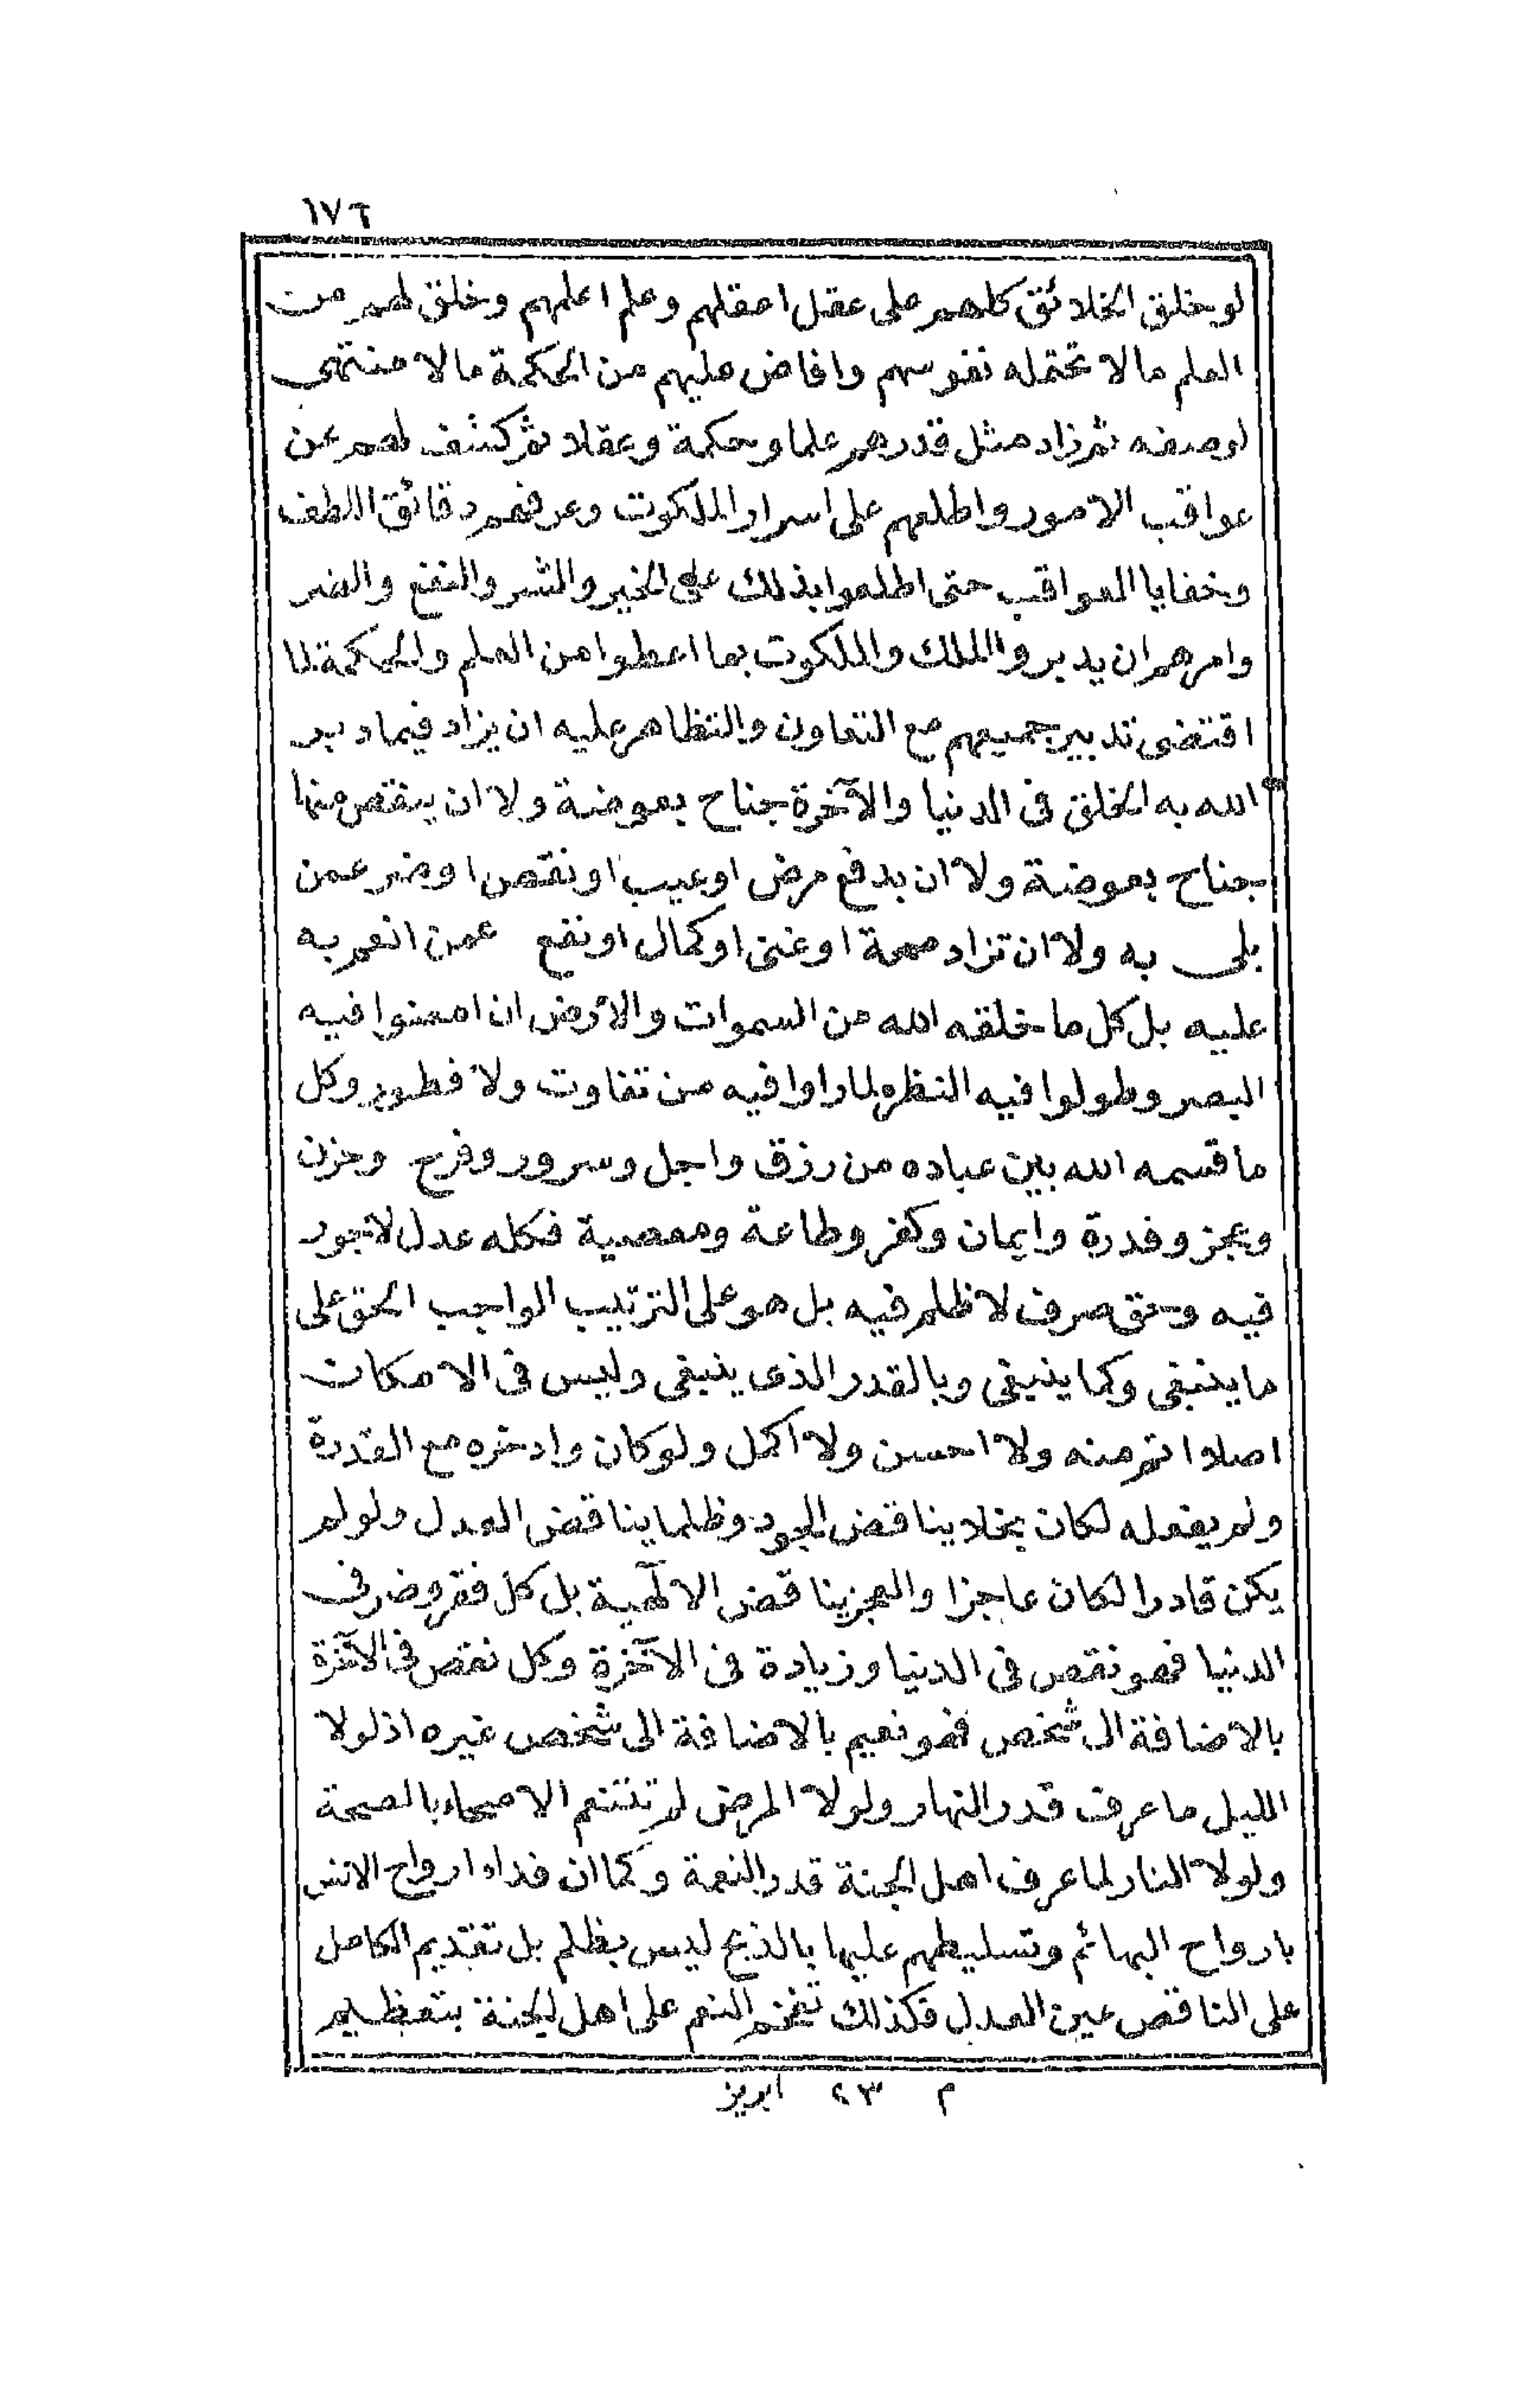 ١٧٦
لو خلق الخلائق كلهم على عقل اعقلهم وعلم اعلمهم وخلق لهم من
العلم مالا تحتمله نفوسهم وافاض عليهم من الحكمة مالا منتهى
لوصفه ثم زاد مثل قدرهم علما وحكمة وعقلا ثم كشف لهم عن
عواقب الامور واطلعهم على اسرار الملكوت وعرفهم دقائق اللطف
وخفايا العواقب حتى اطلعوا بذلك على الخير والشر والنفع والضر
وامرهم ان يدبروا الملك والملكوت بما اعطوا من العلم والحكمة لما
اقتضى تدبير جميعهم مع التعاون والتظاهر عليه ان يزاد فيما دبر
الله به الخلق فى الدنيا والآخرة جناح بعوضة ولا ان ينقص منها
جناح بعوضة ولا ان يدفع مرض او عيب او نقص او ضر عمن
بلى به ولا ان تزاد صحة او غنى او كمال او نفع عمن انعم به
عليه بل كل ما خلقه الله من السموات والأرض ان امعنوا فيه
البصر وطولوا فيه النظر لما راوا فيه من تفاوت ولا فطور وكل
ما قسمه الله بين عباده من رزق واجل وسرور وفرح وحزن
وعجز وقدرة وايمان وكفر وطاعة ومعصية فكله عدل لا جور
فيه وحق صرف لا ظلم فيه بل هو على الترتيب الواجب الحق على
ما ينبغى وكما ينبغى وبالقدر الذى ينبغى وليس فى الامكان
اصلا اتم منه ولا احسن ولا اكمل ولو كان وادخره مع القدرة
ولم يفعله لكان بخلا يناقض الجود وظلما يناقض العدل ولو لم
يكن قادرا لكان عاجزا والعجز يناقض الالهية بل كل فقر وضر فى
الدنيا فهو نقص فى الدنيا وزيادة فى الآخرة وكل نقص فى الآخرة
بالاضافة الى شخص فهو نعيم بالاضافة الى شخص غيره اذ لولا
الليل ما عرف قدر النهار ولولا المرض لم تتنعم الاصحاء بالصحة
ولولا النار لما عرف اهل الجنة قدر النعمة وكما ان فداء ارواح الانس
بارواح البهائم وتسليطهم عليها بالذبح ليس بظلم بل تقديم الكامل
على الناقص عين العدل فكذلك تفخيم النعم على اهل الجنة بتعظيم
م ٢٣ ابريز